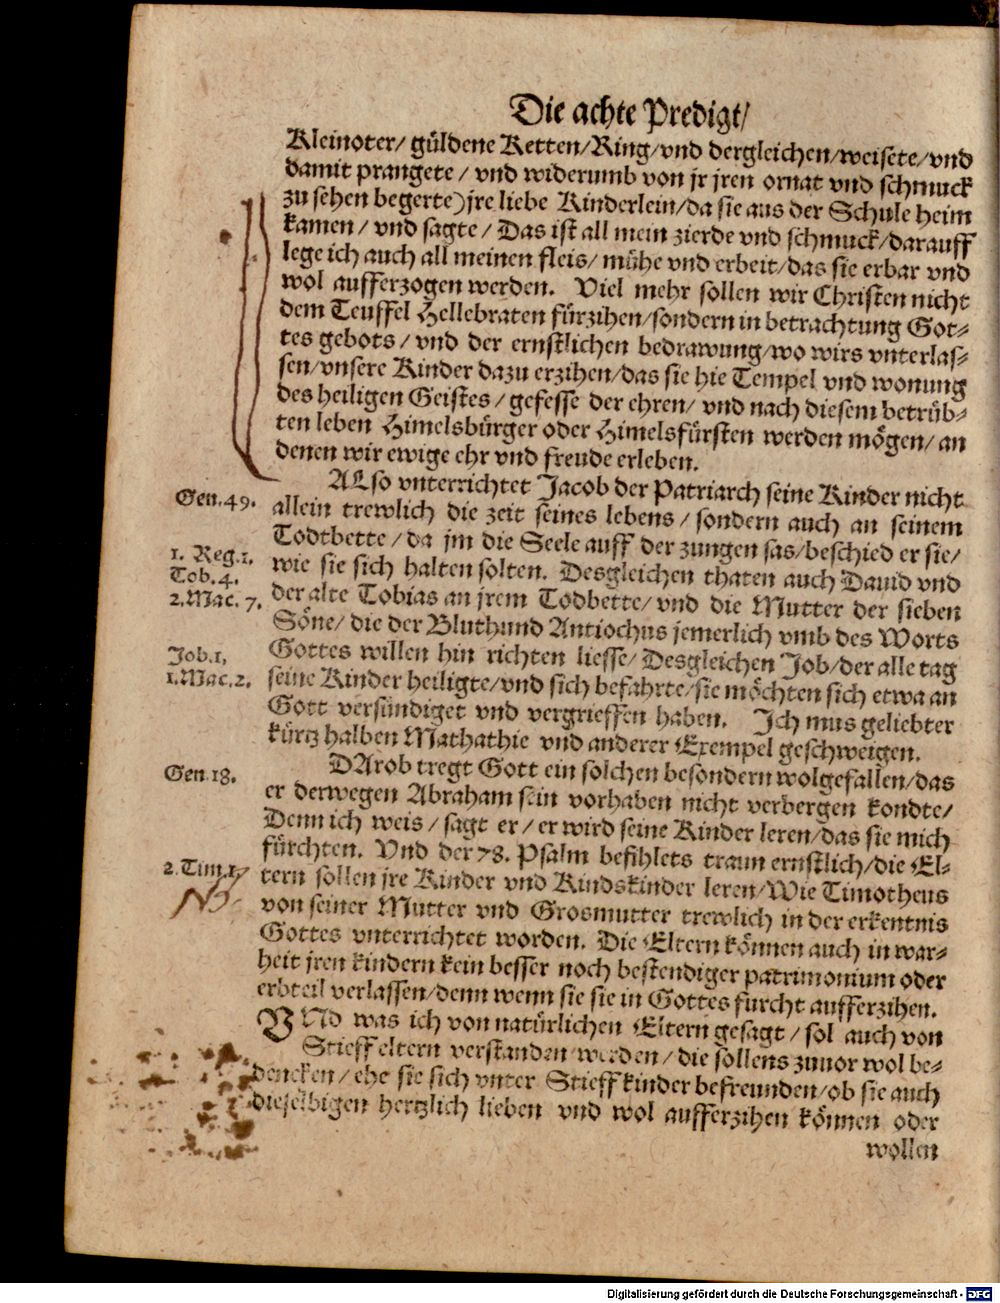 Die achte Predigt/
Kleinoter/ güldene Ketten/Ring/vnd dergleichen/weisete/vnd
damit prangete / vnd widerumb von jr jren ornat vnd schmuck
zu sehen begerte) jre liebe Kinderlein/da sie aus der Schule heim
kamen / vnd sagte / Das ist all mein zierde vnd schmuck/darauff
lege ich auch all meinen fleis/ mühe vnd erbeit/das sie erbar vnd
wol aufferzogen werden. Viel mehr sollen wir Christen nicht
dem Teuffel Hellebraten fürzihen/sondern in betrachtung Got-
tes gebots / vnd der ernstlichen bedrawung/wo wirs vnterlas-
sen/vnsere Kinder dazu erzihen/das sie hie Tempel vnd wonung
des heiligen Geistes / gefesse der ehren/ vnd nach diesem betrüb-
ten leben Himelsbürger oder Himelsfürsten werden mögen/ an
denen wir ewige ehr vnd freude erleben.
Gen. 49. ALso vnterrichtet Jacob der Patriarch seine Kinder nicht
allein trewlich die zeit seines lebens / sondern auch an seinem
Todtbette / da jm die Seele auff der zungen sas/beschied er sie/
1. Reg. 1. wie sie sich halten solten. Desgleichen thaten auch Dauid vnd
Tob. 4.
2. Mac. 7. der alte Tobias an jrem Todbette/ vnd die Mutter der sieben
Söne/ die der Bluthund Antiochus jemerlich vmb des Worts
Job. 1. Gottes willen hin richten liesse/ Desgleichen Job/der alle tag
1. Mac. 2. seine Kinder heiligte/vnd sich befahrte/sie möchten sich etwa an
Gott versündiget vnd vergrieffen haben. Ich mus geliebter
kürtz halben Mathathie vnd anderer Exempel geschweigen.
Gen. 18. DArob tregt Gott ein solchen besondern wolgefallen/das
er derwegen Abraham sein vorhaben nicht verbergen kondte/
Denn ich weis / sagt er / er wird seine Kinder leren/das sie mich
fürchten. Vnd der 78. Psalm befihlets traun ernstlich/die El-
2. Tim. 1. tern sollen jre Kinder vnd Kindskinder leren/Wie Timotheus
NB. von seiner Mutter vnd Grosmutter trewlich in der erkentnis
Gottes vnterrichtet worden. Die Eltern können auch in war-
heit jren kindern kein besser noch bestendiger patrimonium oder
erbteil verlassen/denn wenn sie sie in Gottes furcht aufferzihen.
VNd was ich von natürlichen Eltern gesagt / sol auch von
Stieffeltern verstanden werden / die sollens zuuor wol be-
dencken / ehe sie sich vnter Stieffkinder befreunden/ob sie auch
dieselbigen hertzlich lieben vnd wol aufferzihen können oder
wollen
Digitalisierung gefördert durch die Deutsche Forschungsgemeinschaft - DFG